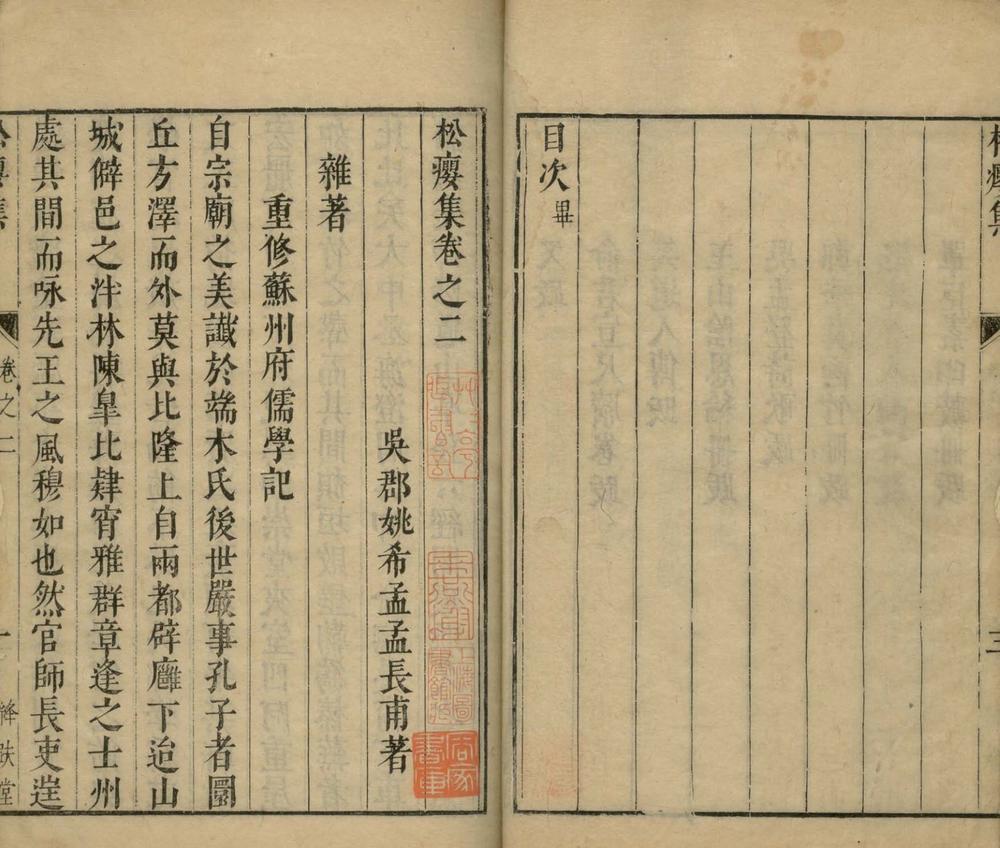 目次畢
三
松癭集卷之二
吳郡姚希孟孟長甫著
雜著
重修蘇州府儒學記
自宗廟之美讖於端木氏後世嚴事孔子者圜
丘方澤而外莫與比隆上自兩都辟廱下迨山
城僻邑之泮林陳臯比肄宵雅群章逢之士州
處其間而咏先王之風穆如也然官師長吏遑
卷之二
一
上海圖書館藏